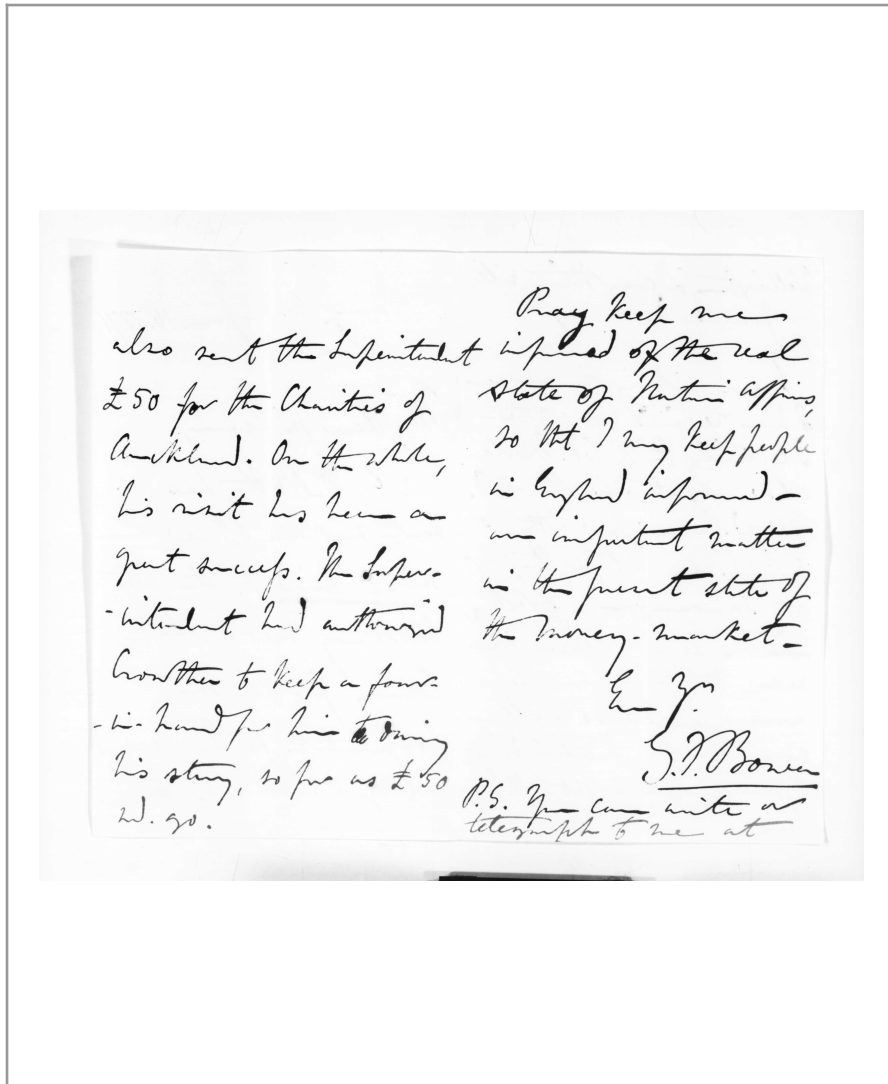 also sent the Superintendent
£50 for the Charities of
Auckland. On the whole,
his visit has been a
great success. The Super-
-intendent had authorized
Crowther to keep a four-
-in-hand for him during
his stay, so far as £50
wd. go.
Pray keep me
informed of the real
state of Native affairs,
so that I may keep people
in England informed –
an important matter
in the present state of
the money-market –
Ev Yrs
G.F. Bowen
P.S. You can write or
telegraph to me at